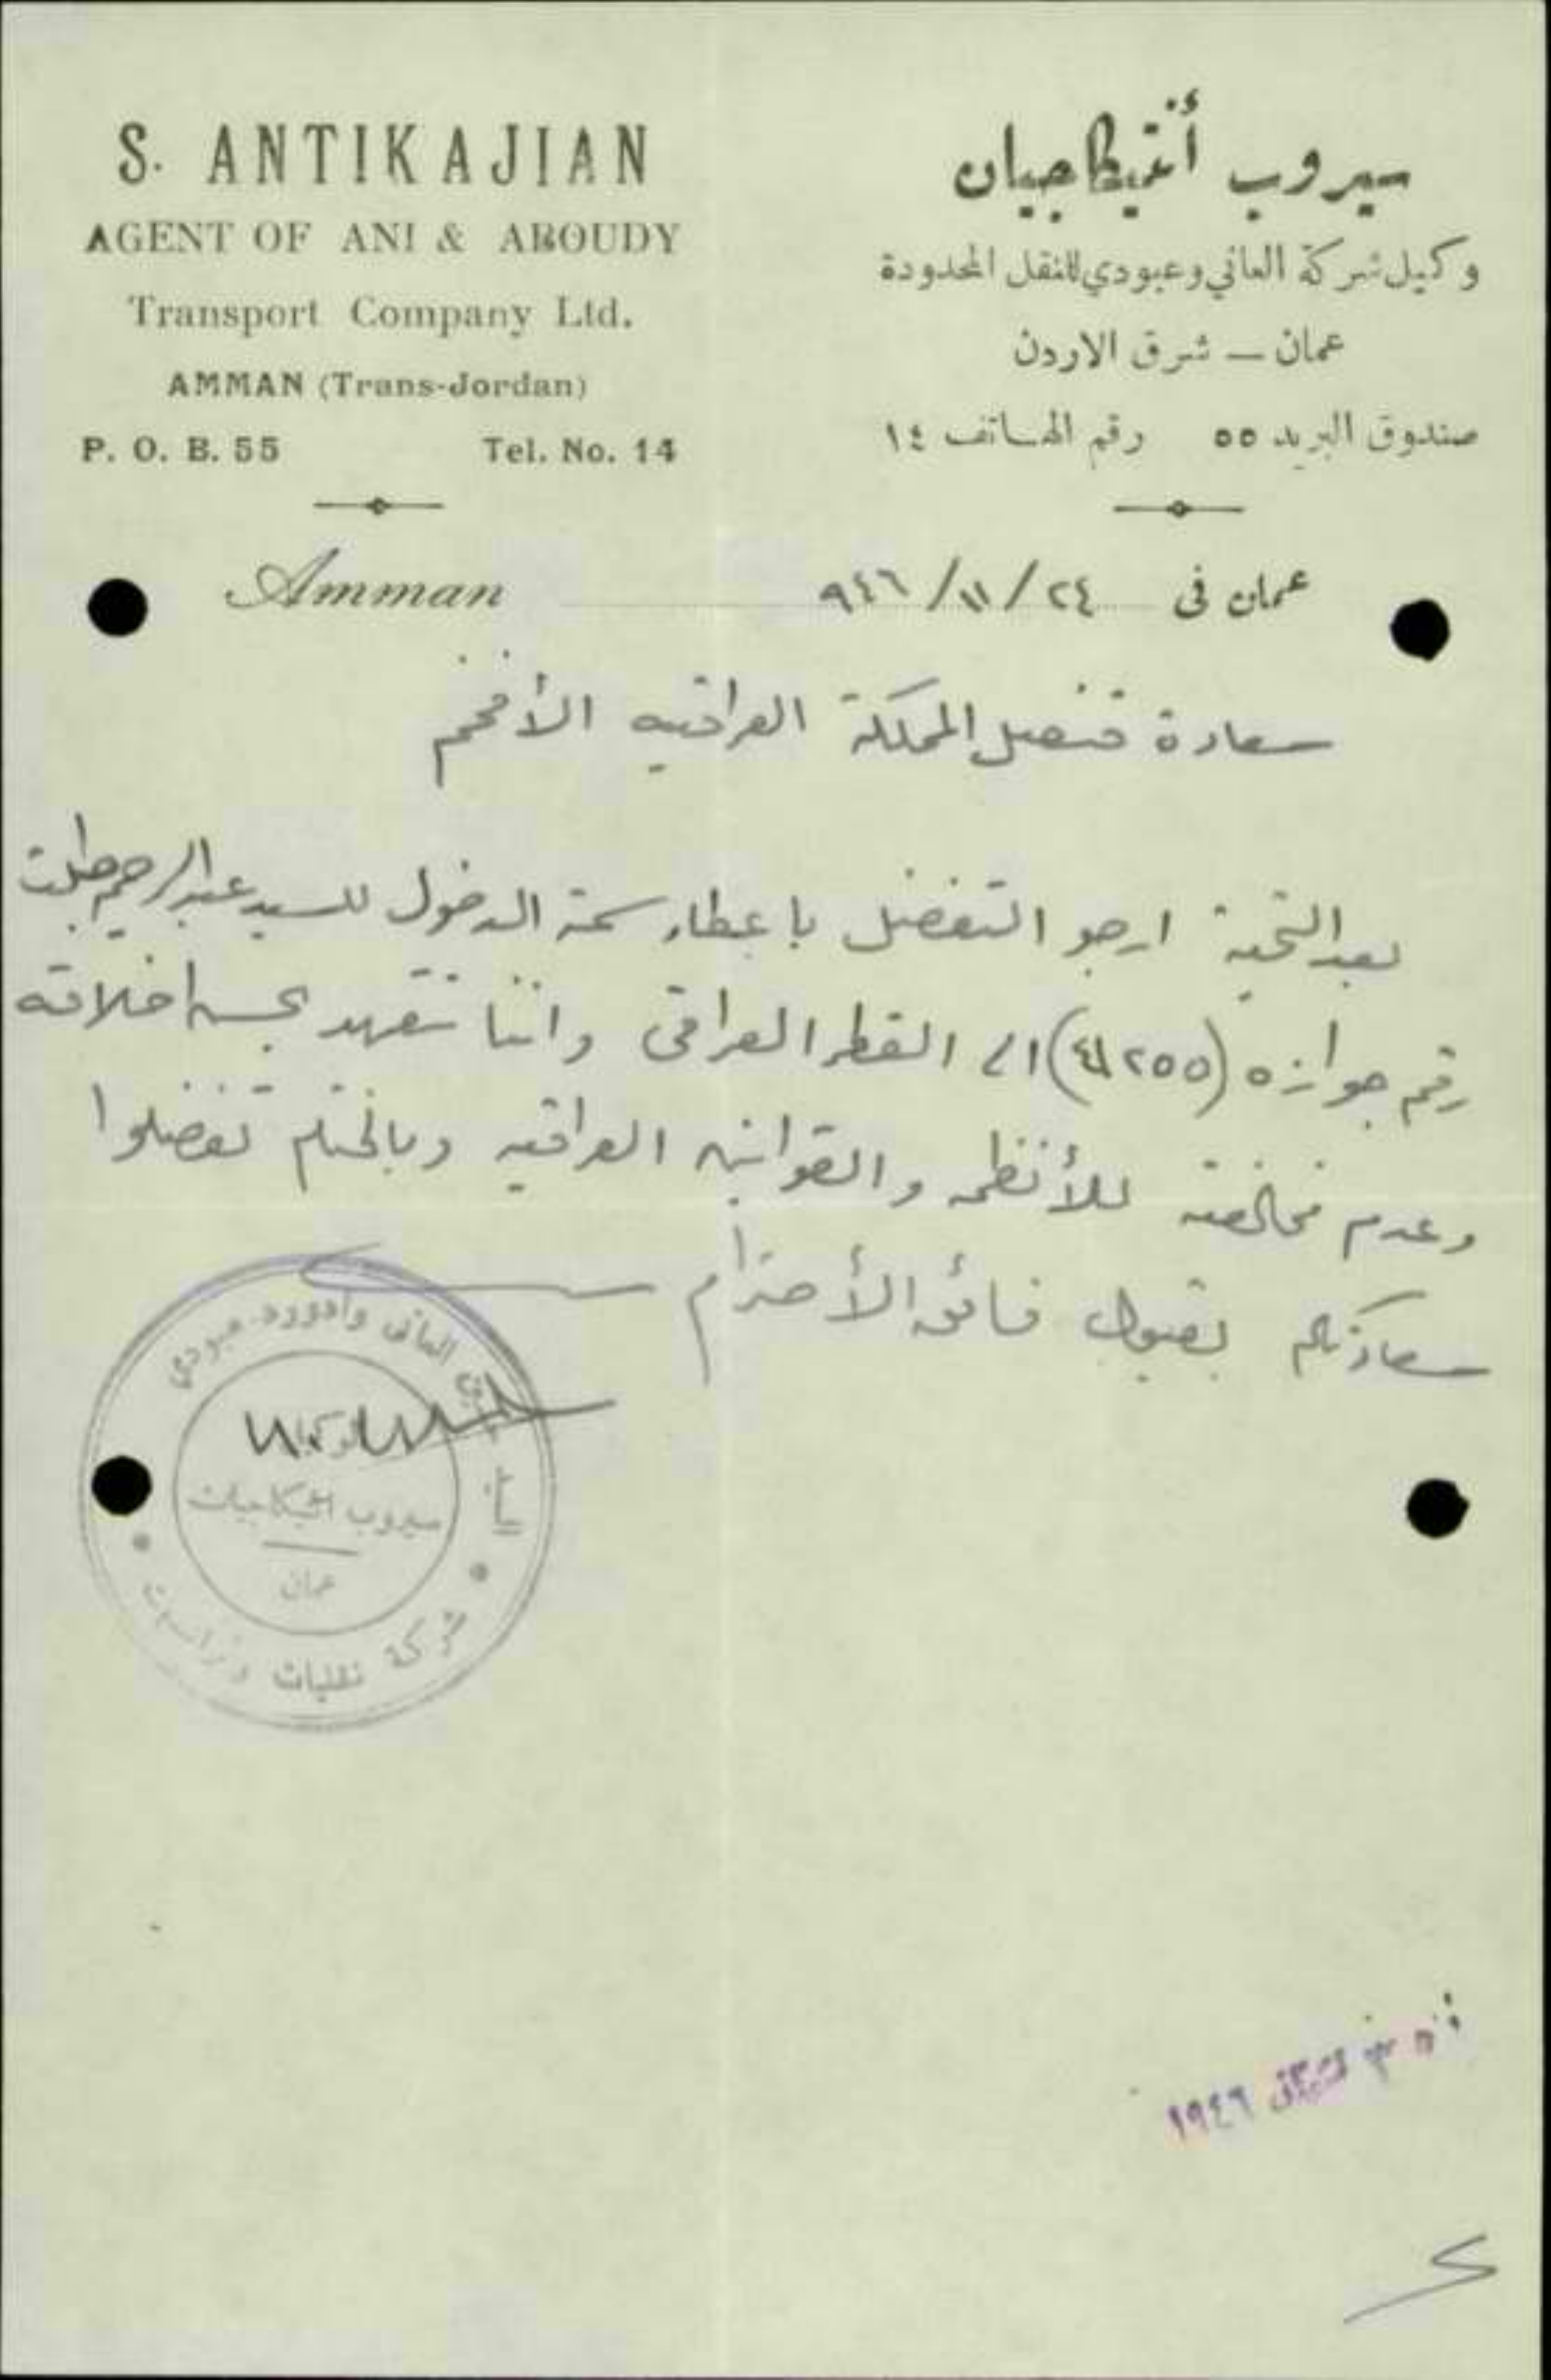 S. ANTIKAJIAN
AGENT OF ANI & ABOUDY
Transport Company Ltd.
AMMAN (Trans-Jordan)
P. O. B. 55 Tel. No. 14
سيروب أنتيكاجيان
وكيل شركة العاني وعبودي للنقل المحدودة
عمان — شرق الاردن
صندوق البريد ٥٥ رقم الهاتف ١٤
Amman
عمان فى ٢٤/١١/٩٤٦
سعادة قنصل المملكة العراقيه الأفخم
بعد التحية ارجو التفضل باعطاء سمة الدخول للسيد عبدالرحيم طلعت
رقم جوازه ٢٥٥) الى القطر العراقى واننا نتعهد بحسن اخلاقه
وعدم مخالفته للأنظمه والقوانين العراقيه وبالختام تفضلوا
سعادتكم بقبول فائق الأحترام
العانى وادورد عبودي
سيروب انتيكاجيان
عمان
شركة نقليات
١٩٤٦